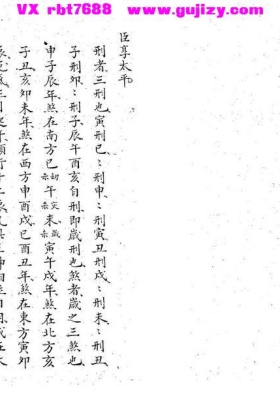 VX rbt7688 www.gujizy.com
臣享太平
刑者三刑也寅刑巳〻刑申〻刑寅丑刑戌〻刑未〻刑丑
子刑卯〻刑子辰午酉亥自刑即歲刑也煞者歲之三煞也
申子辰年煞在南方巳劫煞午災煞未歲煞寅午戌年煞在北方亥
子丑亥卯未年煞在西方申酉戌巳酉丑年煞在東方寅卯